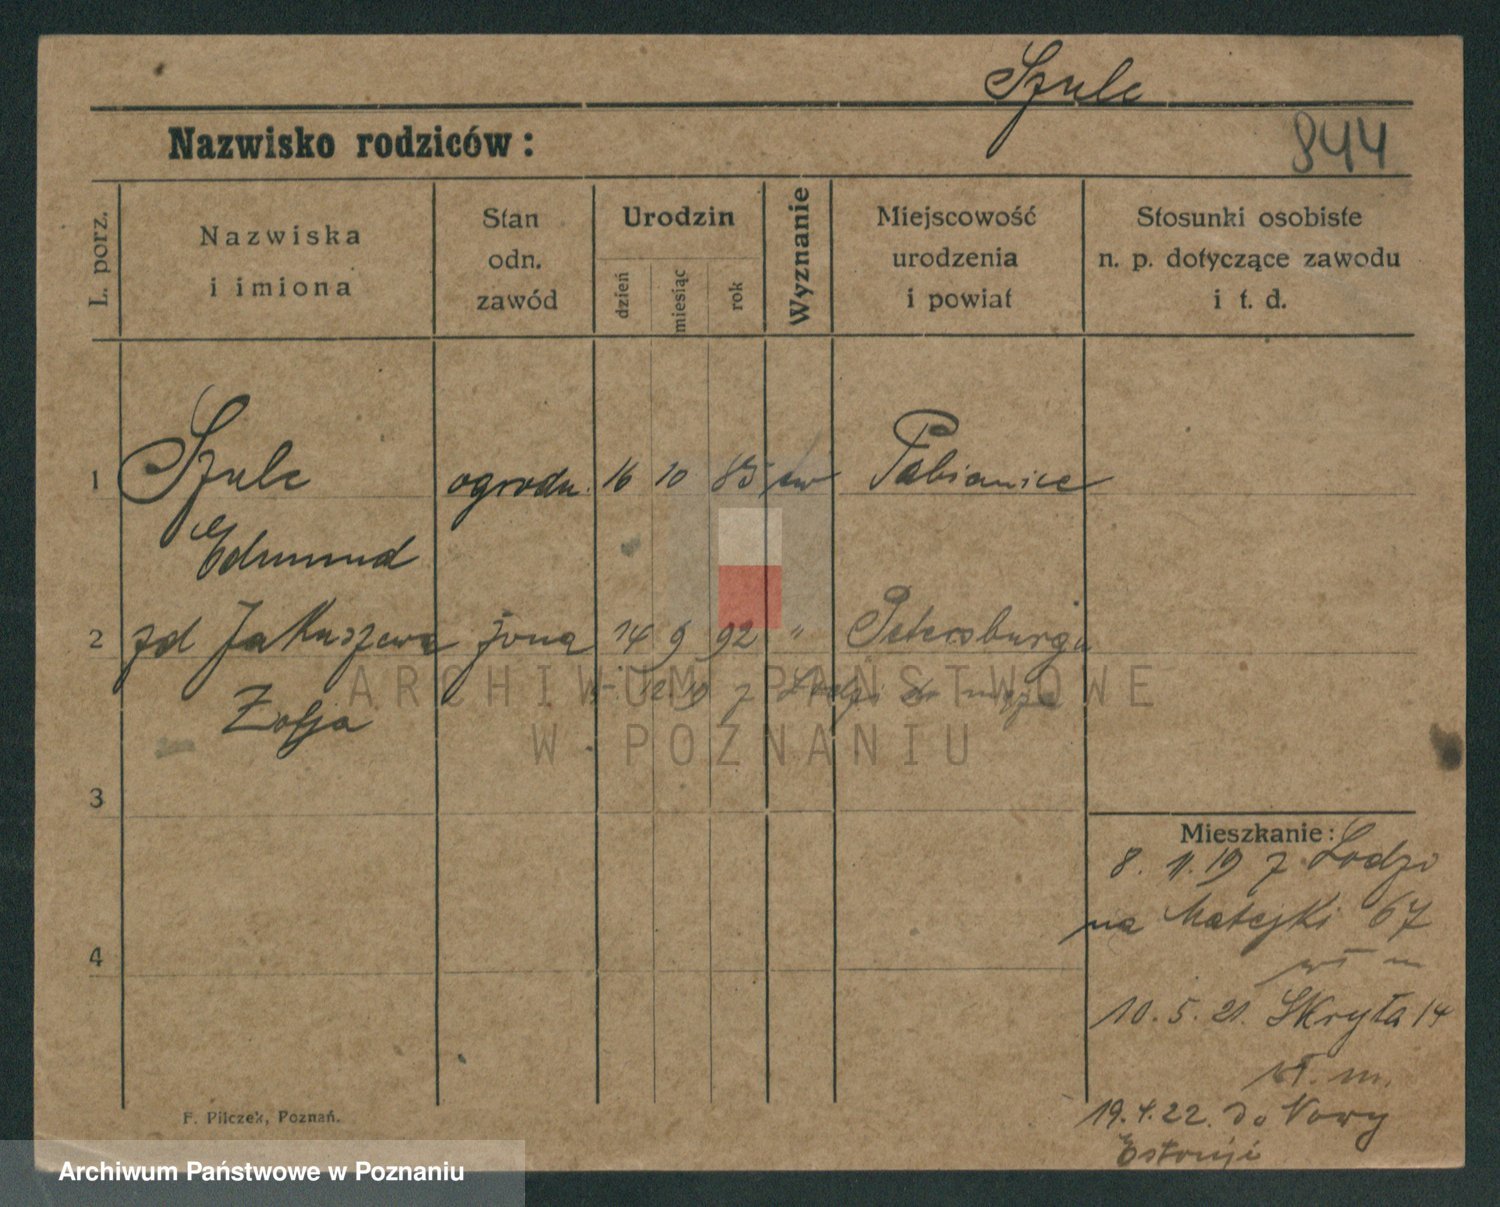 Szulc
Nazwisko rodziców:
844
L. porz.
Nazwiska
i imiona
Stan
odn.
zawód
Urodzin
dzień
miesiąc
rok
Wyznanie
Miejscowość
urodzenia
i powiat
Stosunki osobiste
n. p. dotyczące zawodu
i t. d.
1 Szulc ogrodn. 16 10 85 ew Pabianice
Edmund
2 zd Jakuszewa żona 14 9 92 " Petersburgu
Zofja
12.19 z Łodzi do męża
ARCHIWUM PAŃSTWOWE
W POZNANIU
3
Mieszkanie:
8. 11. 19 z Łodzi
na Matejki 67
4
10. 5. 21. Skryta 14
wł. m.
19.4.22. do Nowy
Estonji
F. Pilczek, Poznań.
Archiwum Państwowe w Poznaniu